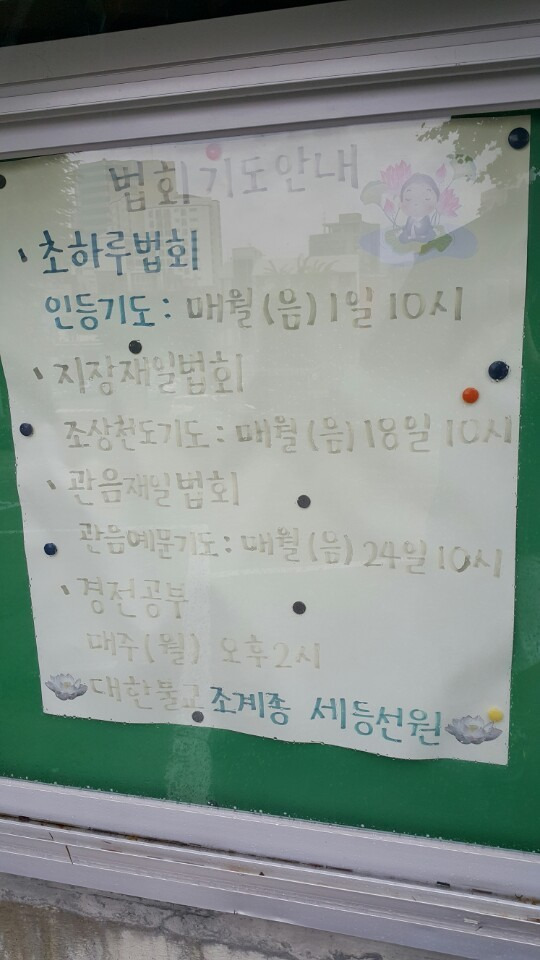 법회기도안내
· 초하루법회
인등기도 : 매월 (음) 1일 10시
· 지장재일법회
조상천도기도 : 매월 (음) 18일 10시
· 관음재일법회
관음예문기도 : 매월 (음) 24일 10시
· 경전공부
매주 (월) 오후 2시
대한불교조계종 세등선원